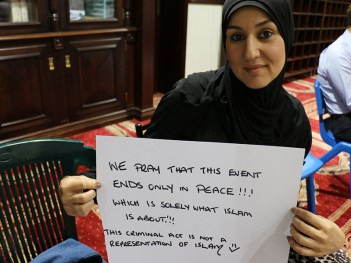 WE PRAY THAT THIS EVENT
ENDS ONLY IN PEACE!!!
WHICH IS SOLELY WHAT ISLAM
IS ABOUT!!!
THIS CRIMINAL ACT IS NOT A
REPRESENTATION OF ISLAM